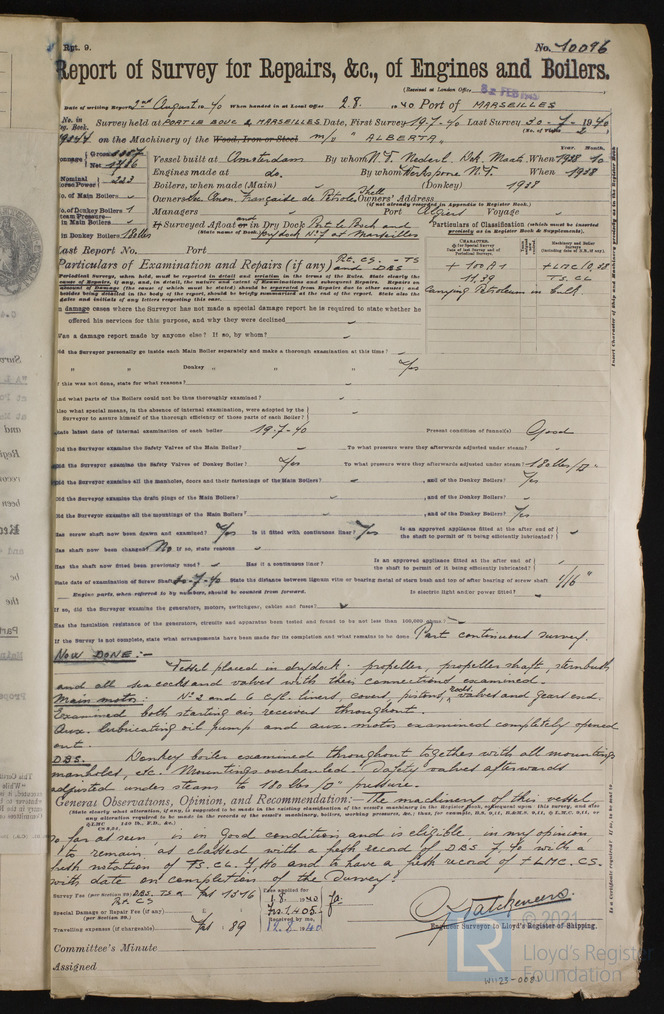 Rpt. 9.
No. 10096
Report of Survey for Repairs, &c., of Engines and Boilers.
(Received at London Office
Date of writing Report 2nd August 1940 When handed in at Local Office 2.8. 1940 Port of MARSEILLES
No. in Reg. Book. Survey held at PORT LE BOUC & MARSEILLES Date, First Survey 19-7-40 Last Survey 30-7-1940
(No. of Visits 2)
on the Machinery of the Wood, Iron or Steel m/v "ALBERTA"
Tonnage Gross 3357 Net 1786
Vessel built at Amsterdam By whom N.V. Nederl. Dok. Maats. When 1938 10
Engines made at do. By whom Werkspoor N.V. When 1938
Nominal Horse Power 223
Boilers, when made (Main) (Donkey) 1938
No. of Main Boilers
Owners Soc. Anon. Française de Petrole Shell Owners' Address
(if not already recorded in Appendix to Register Book.)
No. of Donkey Boilers 1
Managers Port Algiers Voyage
Steam Pressure in Main Boilers
If Surveyed Afloat or in Dry Dock Port le Bouc and
(State name of Dock.) Drydock No. 7 at Marseilles
in Donkey Boilers 180 lbs
Particulars of Classification (which must be inserted precisely as in Register Book & Supplements).
Last Report No. Port
+ 100A1
11.39
Carrying Petroleum in bulk.
+LMC 10,38
TS CL
Particulars of Examination and Repairs (if any) Pt. CS. - TS and DBS
Periodical Surveys, when held, must be reported in detail and seriatim in the terms of the Rules. State clearly the cause of Repairs, if any, and, in detail, the nature and extent of Examinations and subsequent Repairs. Repairs on account of Damage (the cause of which must be stated) should be separated from Repairs due to other causes; and besides being detailed in the body of the report, should be briefly summarised at the end of the report. State also the dates and initials of any letters respecting this case.
In damage cases where the Surveyor has not made a special damage report he is required to state whether he offered his services for this purpose, and why they were declined
Was a damage report made by anyone else? If so, by whom?
Did the Surveyor personally go inside each Main Boiler separately and make a thorough examination at this time?
" " Donkey " " " Yes
If this was not done, state for what reasons?
And what parts of the Boilers could not be thus thoroughly examined?
Also what special means, in the absence of internal examination, were adopted by the Surveyor to assure himself of the thorough efficiency of those parts of each Boiler?
State latest date of internal examination of each boiler 19-7-40 Present condition of funnel(s) Good
Did the Surveyor examine the Safety Valves of the Main Boiler? To what pressure were they afterwards adjusted under steam?
Did the Surveyor examine the Safety Valves of Donkey Boiler? Yes To what pressure were they afterwards adjusted under steam? 180 lbs/□"
Did the Surveyor examine all the manholes, doors and their fastenings of the Main Boilers? , and of the Donkey Boiler? Yes
Did the Surveyor examine the drain plugs of the Main Boilers? , and of the Donkey Boiler?
Did the Surveyor examine all the mountings of the Main Boilers? , and of the Donkey Boiler? Yes
Has screw shaft now been drawn and examined? Yes Is it fitted with continuous liner? Yes Is an approved appliance fitted at the after end of the shaft to permit of it being efficiently lubricated?
Has shaft now been changed? No If so, state reasons
Has the shaft now fitted been previously used? Has it a continuous liner? Is an approved appliance fitted at the after end of the shaft to permit of it being efficiently lubricated?
State date of examination of Screw Shaft 30-7-40 State the distance between lignum vitæ or bearing metal of stern bush and top of after bearing of screw shaft 1/16"
Engine parts, when referred to by numbers, should be counted from forward. Is electric light and/or power fitted?
If so, did the Surveyor examine the generators, motors, switchgear, cables and fuses?
Has the insulation resistance of the generators, circuits and apparatus been tested and found to be not less than 100,000 ohms?
If the Survey is not complete, state what arrangements have been made for its completion and what remains to be done Part continuous survey.
NOW DONE:-
Vessel placed in drydock: propeller, propeller shaft, sternbush
and all sea cocks and valves with their connections examined.
Main motor: No 2 and 6 cyl. liners, covers, pistons, rods, valves and gears end.
Examined both starting air receivers throughout.
Aux. lubricating oil pump and aux. motor examined completely opened
out.
DBS. Donkey boiler examined throughout together with all mountings
manholes, etc. Mountings overhauled. Safety valves afterwards
adjusted under steam to 180 lbs/□" pressure.
General Observations, Opinion, and Recommendation:- The machinery of this vessel
(State clearly what alteration, if any, is suggested to be made in the existing notation of the vessel's machinery in the Register Book,
so far as seen is in good condition and is eligible, in my opinion,
to remain as classed with a fresh record of DBS 7,40 with a
fresh notation of TS.CL. 7,40 and to have a fresh record of +LMC. CS.
with date on completion of the Survey.
Survey Fee (per Section 29) DBS. TS & Pt. CS Frs 1316
Fees applied for 1.8.1940
Special Damage or Repair Fee (if any) (per Section 29.)
Frs. 1.405
Received by me,
Travelling expenses (if chargeable) Frs 89
Engineer Surveyor to Lloyd's Register of Shipping.
Committee's Minute
Assigned
© 2021
LR
Lloyd's Register
Foundation
W1123-0081